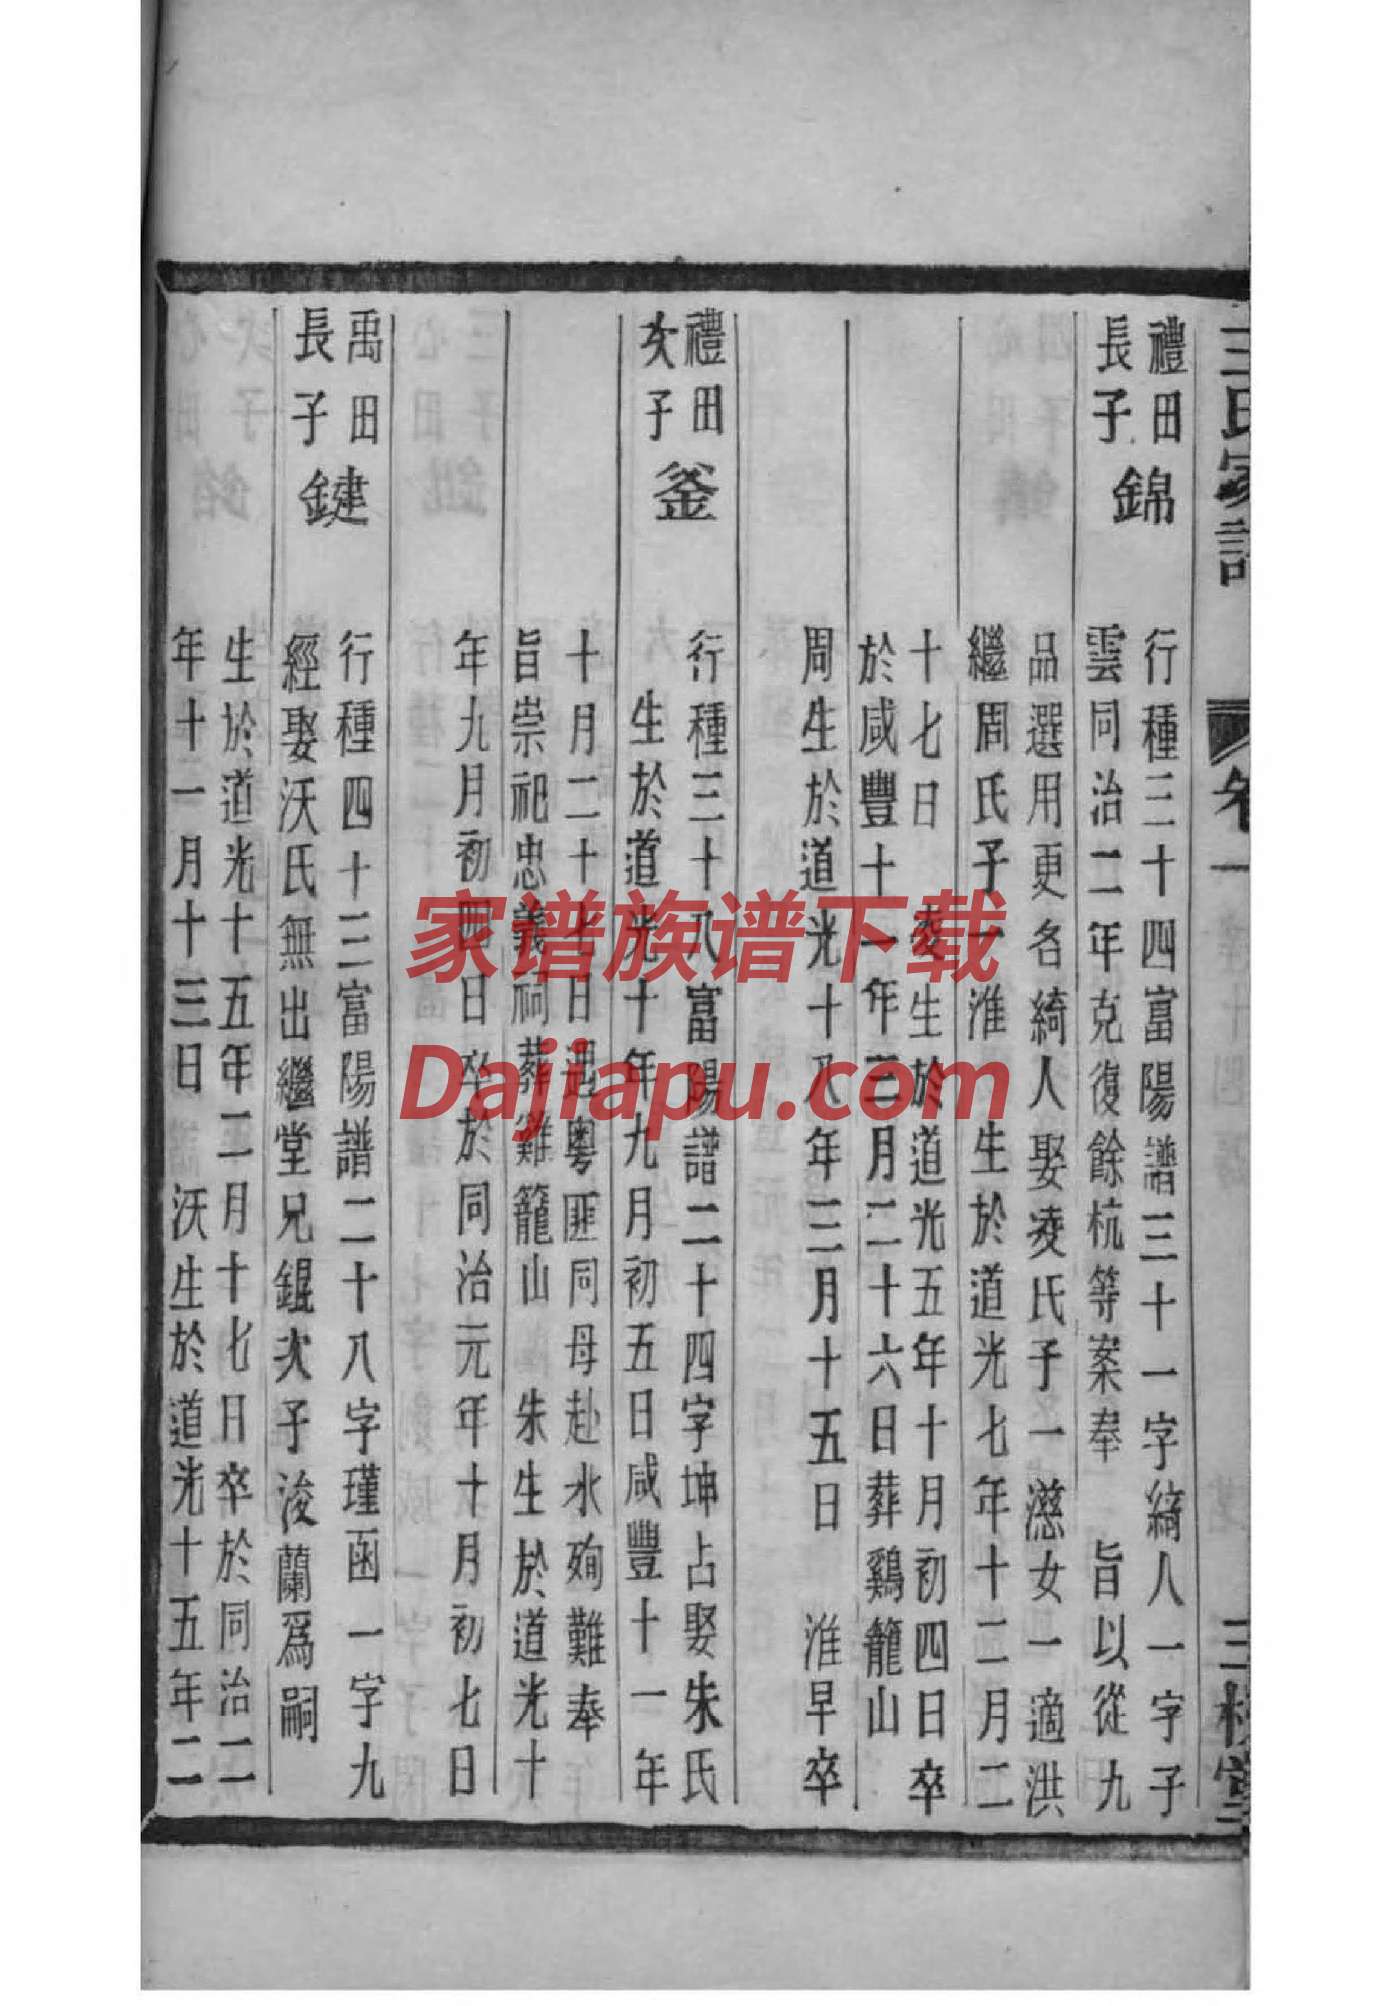 王氏家譜 卷一 三槐堂
禮田
長子
錦
行種三十四富陽譜三十一字綺人一字子
雲同治二年克復餘杭等案奉 旨以從九
品選用更名綺人娶凌氏子一滋女一適洪
繼周氏子一淮 生於道光七年十二月二
十七日 凌生於道光五年十月初四日卒
於咸豐十一年三月二十六日葬鷄籠山
周生於道光十八年三月十五日 淮早卒
禮田
次子
釜
行種三十八富陽譜二十四字坤占娶朱氏
生於道光十年九月初五日咸豐十一年
十月二十七日遇粵匪同母赴水殉難奉
旨崇祀忠義祠葬雞籠山 朱生於道光十
年九月初四日卒於同治元年十月初七日
禹田
長子
鍵
行種四十三富陽譜二十八字瑾函一字九
經娶沃氏無出繼堂兄錕次子浚蘭爲嗣
生於道光十五年二月十七日卒於同治二
年十一月十三日 沃生於道光十五年二
家谱族谱下载
Dajiapu.com